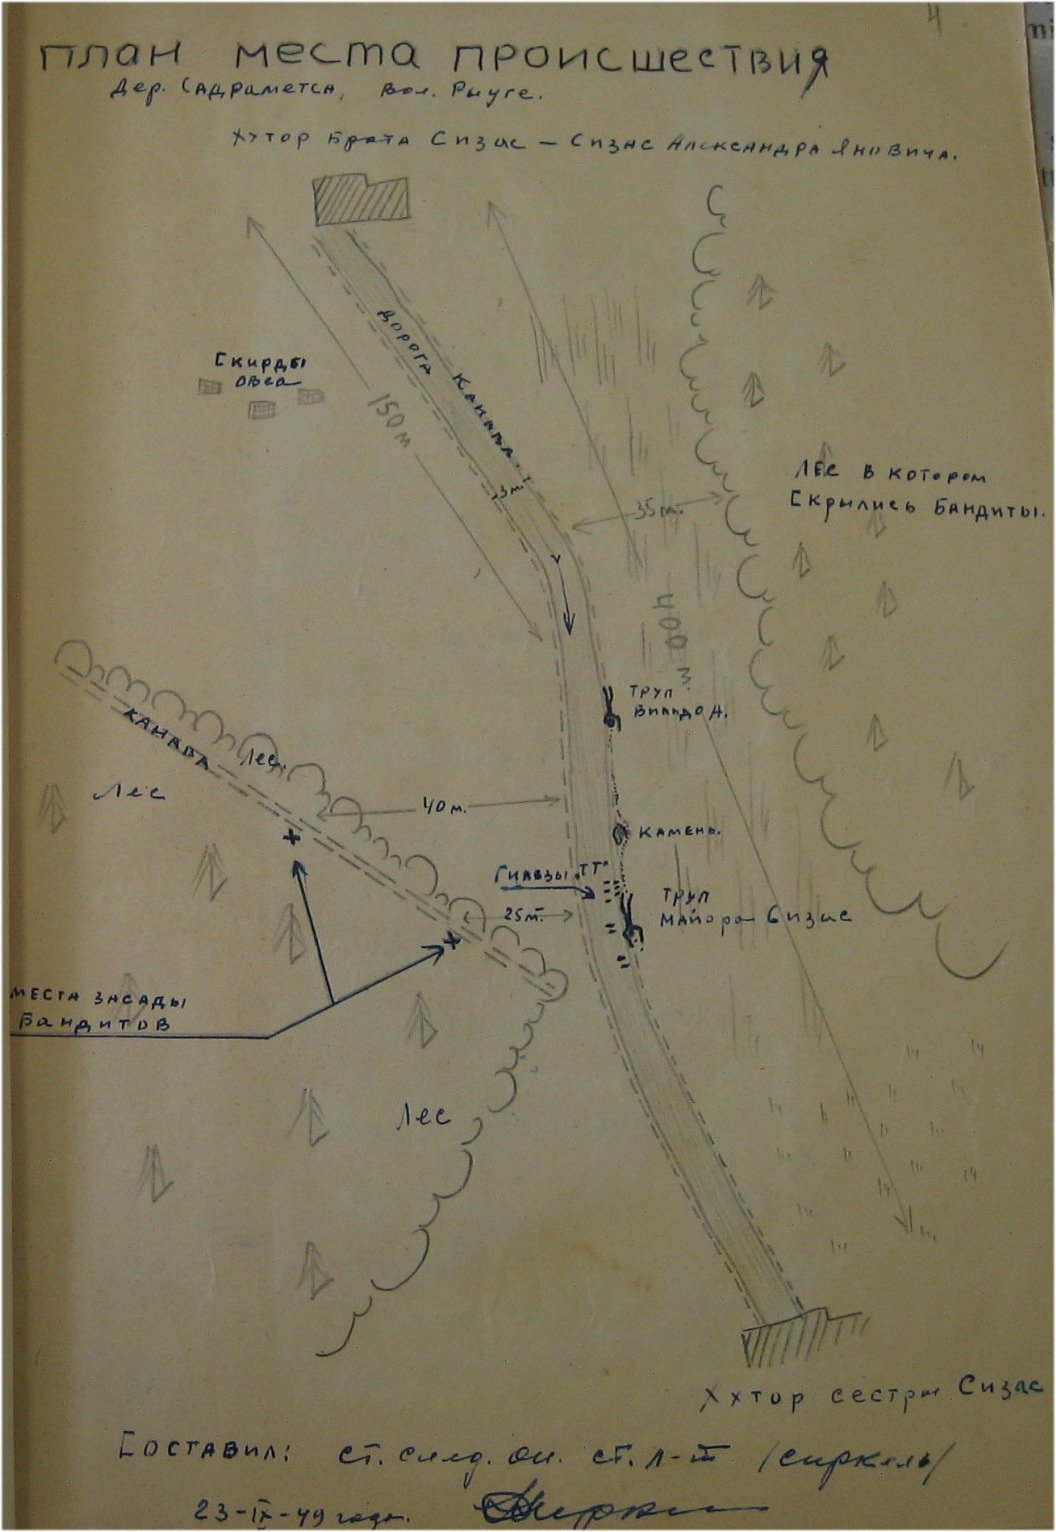 4
ПЛАН МЕСТА ПРОИСШЕСТВИЯ
Дер. САДРАМЕТСА, Вол. Рыуге.
ХУТОР Брата Сизас – СИЗАС АЛЕКСАНДРА ЯНОВИЧА.
ДОРОГА КАНАВА.
Скирды
овса
150 м
3 м.
35 м.
ЛЕС В КОТОРОМ
Скрылись Бандиты.
400 м.
ТРУП
ВИЛЬДО А.
КАНАВА
Лес
Лес
40 м.
КАМЕНЬ.
Гильзы "ТТ"
25 м.
ТРУП
МАЙОРА Сизас
МЕСТА ЗАСАДЫ
БАНДИТОВ
Лес
Хутор сестры Сизас
СОСТАВИЛ: ст. след. ст. л-т /Сиркель/
23-IX-49 года.